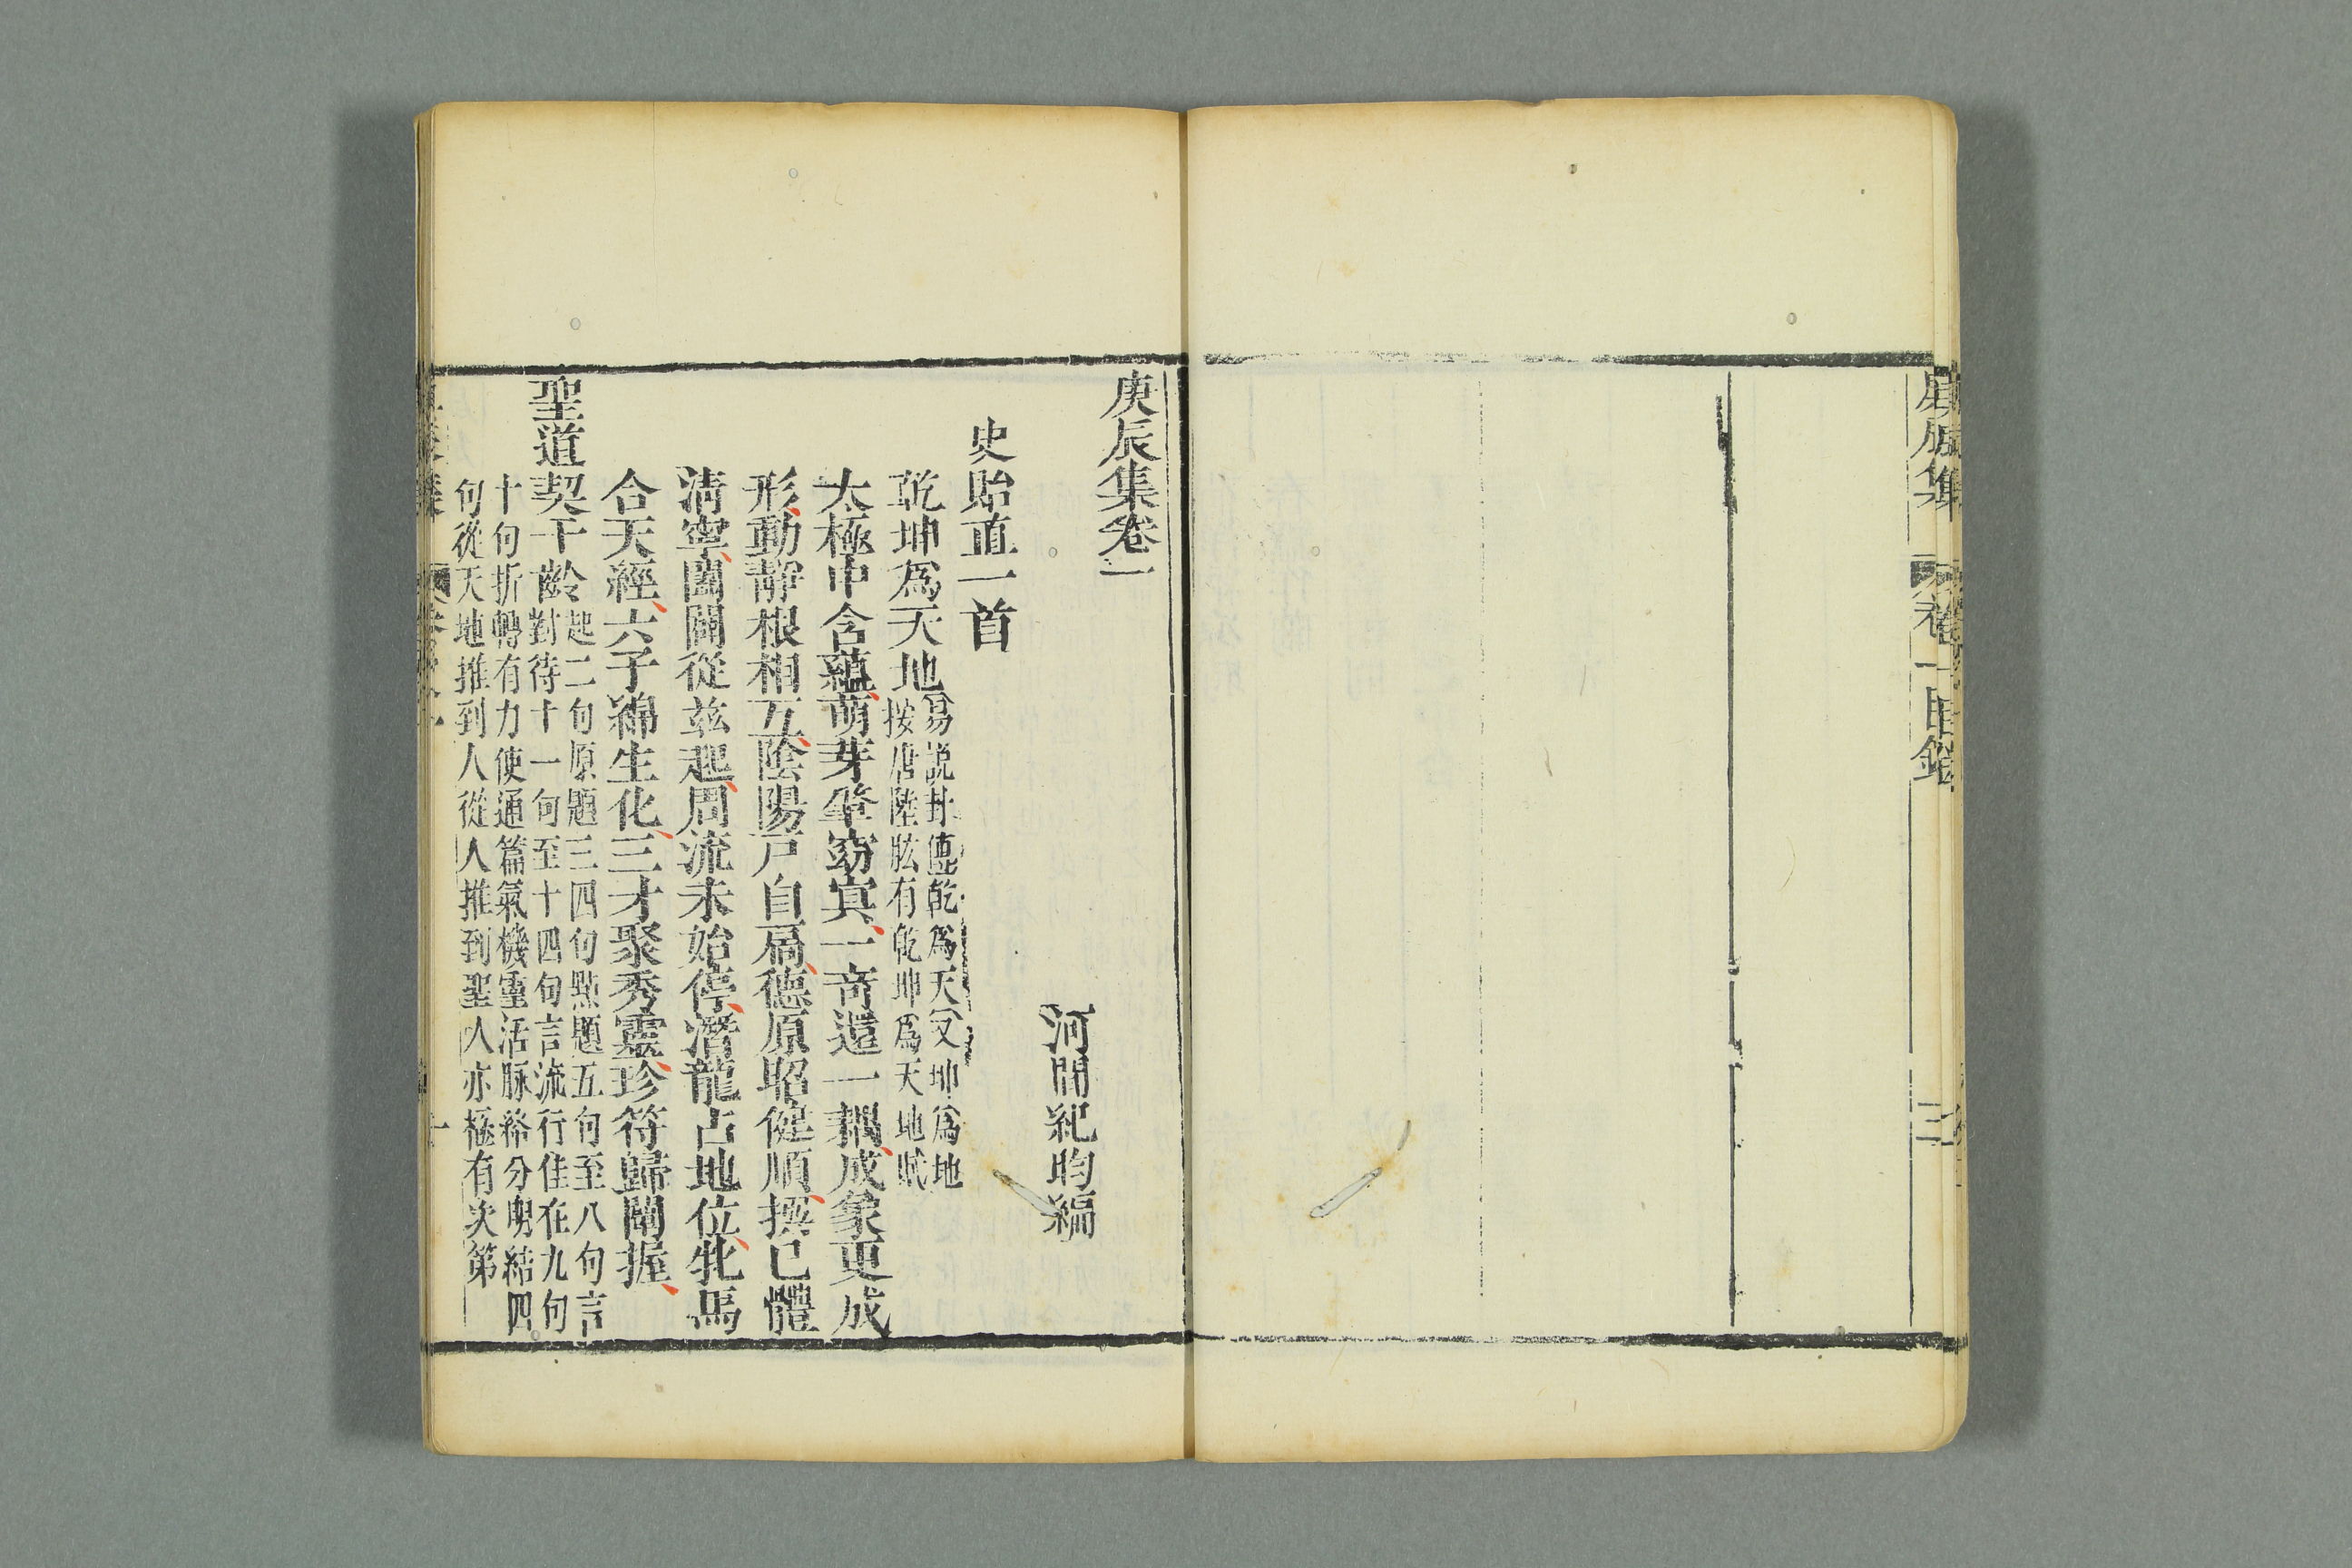 庚辰集
卷一目錄
三
庚辰集卷一
河間紀昀編
史貽直一首
乾坤為天地
易說卦傳乾為天又坤為地
按唐陸肱有乾坤為天地賦
太極中含蘊萌芽肇窈冥一奇還一耦成象更成
形動靜根相互陰陽戸自扃德原昭健順撰已體
清寧闔闢從玆起周流未始停潛龍占地位牝馬
合天經六子綿生化三才聚秀靈珍符歸闡握
聖道契千齡
起二句原題三四句點題五句至八句言
對待十一句至十四句言流行佳在九句
十句折轉有力使通篇氣機靈活脉絡分明結四
句從天地推到人從人推到聖人亦極有次第